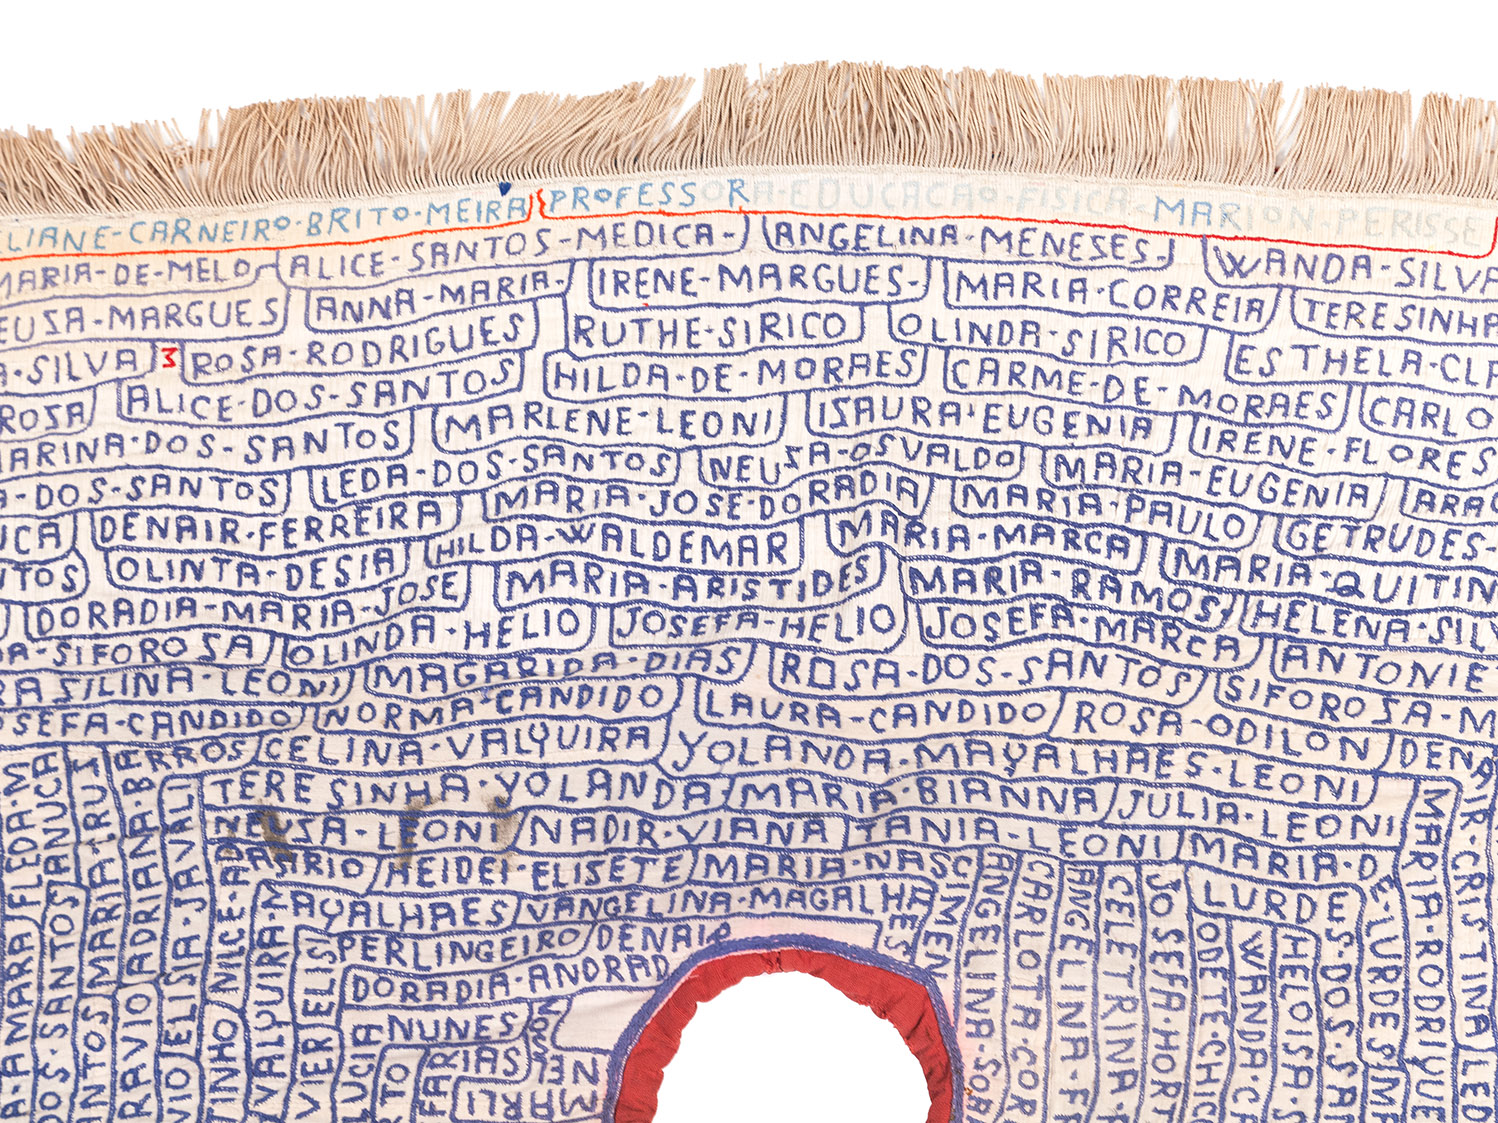 LIANE-CARNEIRO-BRITO-MEIRA PROFESSORA-EDUCACAO-FISICA-MARION-PERISSE
MARIA-DE-MELO ALICE-SANTOS-MEDICA- ANGELINA-MENESES- WANDA-SILVA
EUSA-MARGUES ANNA-MARIA- IRENE-MARGUES- MARIA-CORREIA TERESINHA
A-SILVA M ROSA-RODRIGUES RUTHE-SIRICO OLINDA-SIRICO ESTHELA-CLA
ROSA ALICE-DOS-SANTOS HILDA-DE-MORAES CARME-DE-MORAES CARLO
ARINA-DOS-SANTOS MARLENE-LEONI ISAURA-EUGENIA IRENE-FLORES
A-DOS-SANTOS LEDA-DOS-SANTOS NEUSA-OSVALDO MARIA-EUGENIA ARAC
UCA DENAIR-FERREIRA MARIA-JOSE-DORADIA MARIA-PAULO GETRUDES-
NTOS OLINTA-DESIA HILDA-WALDEMAR MARIA-MARCA MARIA-QUITIN
DORADIA-MARIA-JOSE MARIA-ARISTIDES MARIA-RAMOS HELENA-SILV
DA-SIFOROSA OLINDA-HELIO JOSEFA-HELIO JOSEFA-MARCA ANTONIE
RASILINA-LEONI MAGARIDA-DIAS ROSA-DOS-SANTOS SIFOROSA-M
OSEFA-CANDIDO NORMA-CANDIDO LAURA-CANDIDO ROSA-ODILON DENA
BERROS CELINA-VALQUIRA YOLANDA-MAQALHAES-LEONI
TERESINHA-YOLANDA MARIA-BIANNA JULIA-LEONI
NEUSA-LEONI NADIR-VIANA TANIA-LEONI MARIA-DE-LURDES
DARIO HEIDEI-ELISETE MARIA-NASCIMEN
MAQALHAES VANGELINA-MAGALHAES
PERLINGEIRO DENAIR
DORADIA-ANDRAD
NUNES
FARIAS
MARLI
LURDES-DOS-SA
FLEDA-M
A-AMARA
ANUCA
DOS-SANTOS
MARIA-RUI
ANTOS
ADRIANA-B
RAVIO
ELISA-JAVALI
VIO
NILCE-A
TINHO
VALQUIRA-M
VIER ELIS
LUCIA
ANGELINA-SO
CARLOTA-COR
ANGELINA-F
CELETRINA
JOSEFA-HORT
ODETE-CHIC
WANDA-CA
HELOISA-S
MARIA-RODRIQUE
MARIA-CRISTINA LED